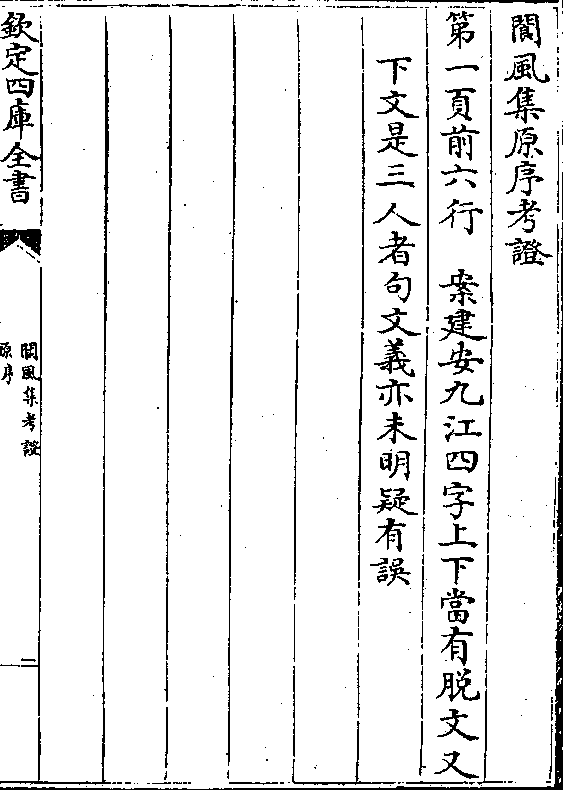 閬風集原序考證
第一頁前六行　案建安九江四字上下當有脱文又
下文是三人者句文義亦未明疑有誤
欽定四庫全書
閬風集考證
原序
二